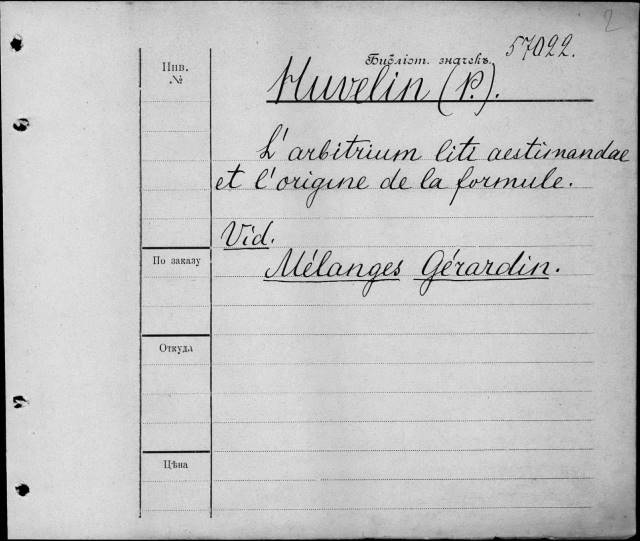 2
57022.
Инв.
№
Библіот. значекъ.
Huvelin (P.).
L'arbitrium liti aestimandae
et l'origine de la formule.
Vid.
Mélanges Gérardin.
По заказу
Откуда
Цѣна